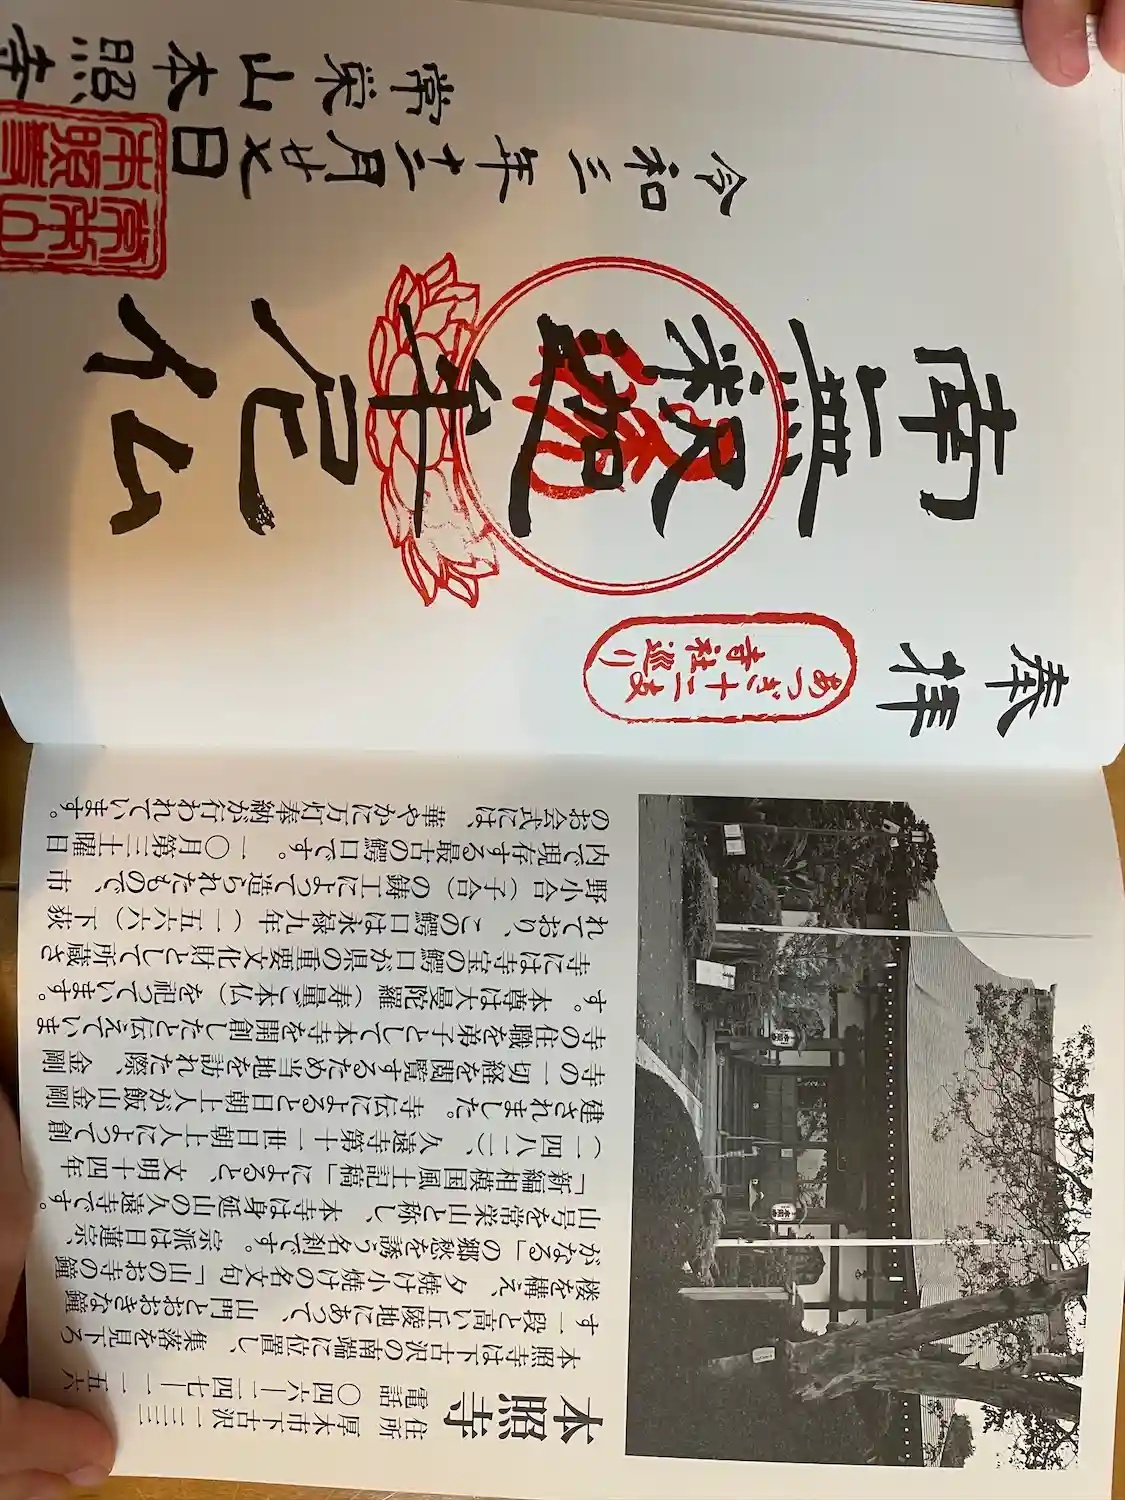 奉拝
あつぎ十二支
寺社巡り
南無釈迦牟尼仏
令和三年十二月廿七日
常栄山本照寺
本照寺
住所 厚木市下古沢一一三三
電話 〇四六―二四七―一一五六
本照寺は下古沢の南端に位置し、集落を見下ろ
す一段と高い丘陵地にあって、山門とおおきな鐘
楼を構え、夕焼け小焼けの名文句「山のお寺の鐘
がなる」の郷愁を誘う名刹です。宗派は日蓮宗、
山号を常栄山と称し、本寺は身延山の久遠寺です。
「新編相模国風土記稿」によると、文明十四年
(一四八二)、久遠寺第十一世日朝上人によって創
建されました。寺伝によると日朝上人が飯山金剛
寺の一切経を閲覧するため当地を訪れた際、金剛
寺の住職を弟子として本寺を開創したと伝えていま
す。本尊は大曼陀羅(寿量ご本仏)を祀っています。
寺には寺宝の鰐口が県の重要文化財として所蔵さ
れており、この鰐口は永禄九年(一五六六)下荻
野小合(子合)の鋳工によって造られたもので、市
内で現存する最古の鰐口です。一〇月第三土曜日
のお会式には、華やかに万灯奉納が行われています。